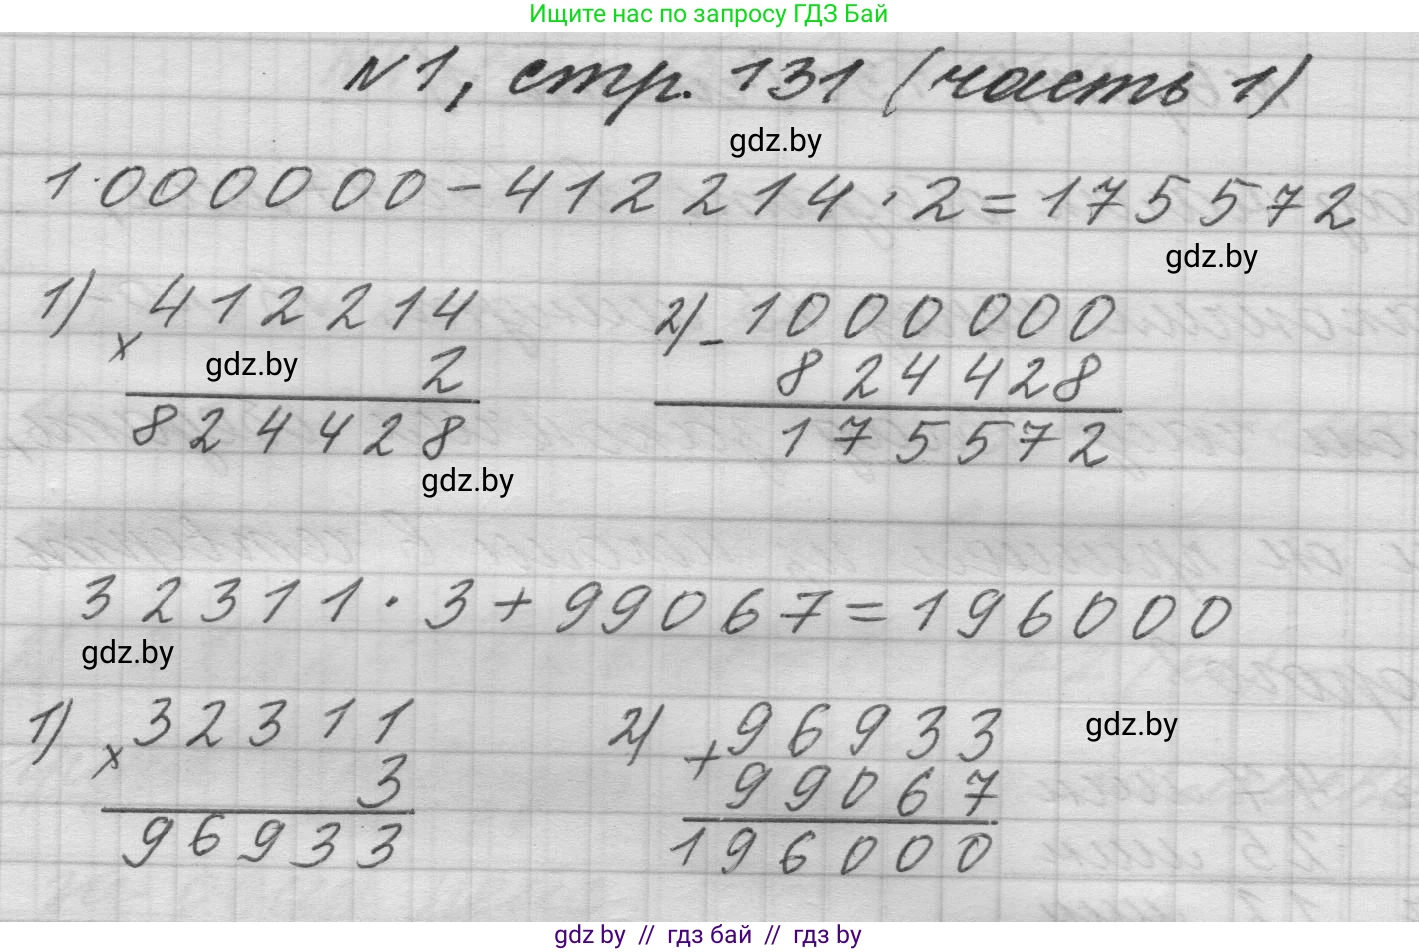 Ищите нас по запросу ГДЗ Бай
№1, стр. 131 (часть 1)
gdz.by
1 000 000 - 412 214 · 2 = 175 572
gdz.by
1) × 412214
2
824428
gdz.by
gdz.by
2) - 1000000
824428
175572
32311 · 3 + 99067 = 196000
gdz.by
1) × 32311
3
96933
2) + 96933
99067
196000
gdz.by
gdz.by // гдз бай // гдз by